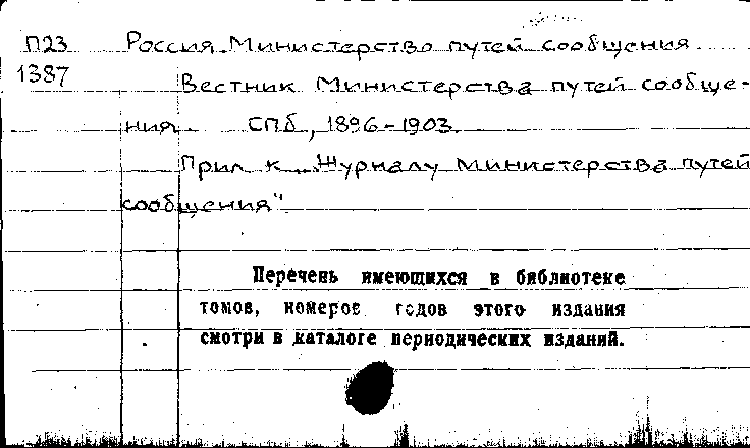 П23 Россия. Министерство путей сообщения
1387 Вестник Министерства путей сообще-
ния. СПб, 1896-1903.
Прил. к „Журналу Министерства путей
сообщения"
Перечень имеющихся в библиотеке
томов, номеров годов этого издания
смотри в каталоге периодических изданий.